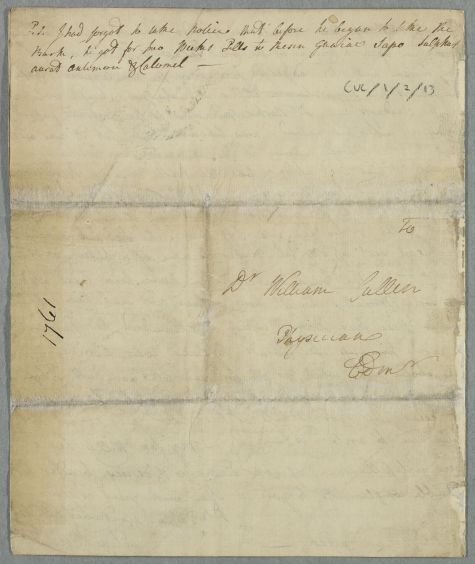 P.S. I had forgot to take Notice that before he began to take the
Bark, he got for two Weeks Pills ex Resin Guaiac Sapo Sulphur
aurat antimon & Calomel —
CUL/1/2/13
To
Dr William Cullen
Physician
Edinr
1761